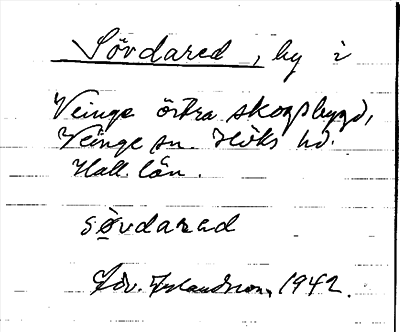 Sövdared, by i
Veinge östra skogsbygd,
Veinge sn. Höks hd.
Hall. län.
sövdarad
1942.